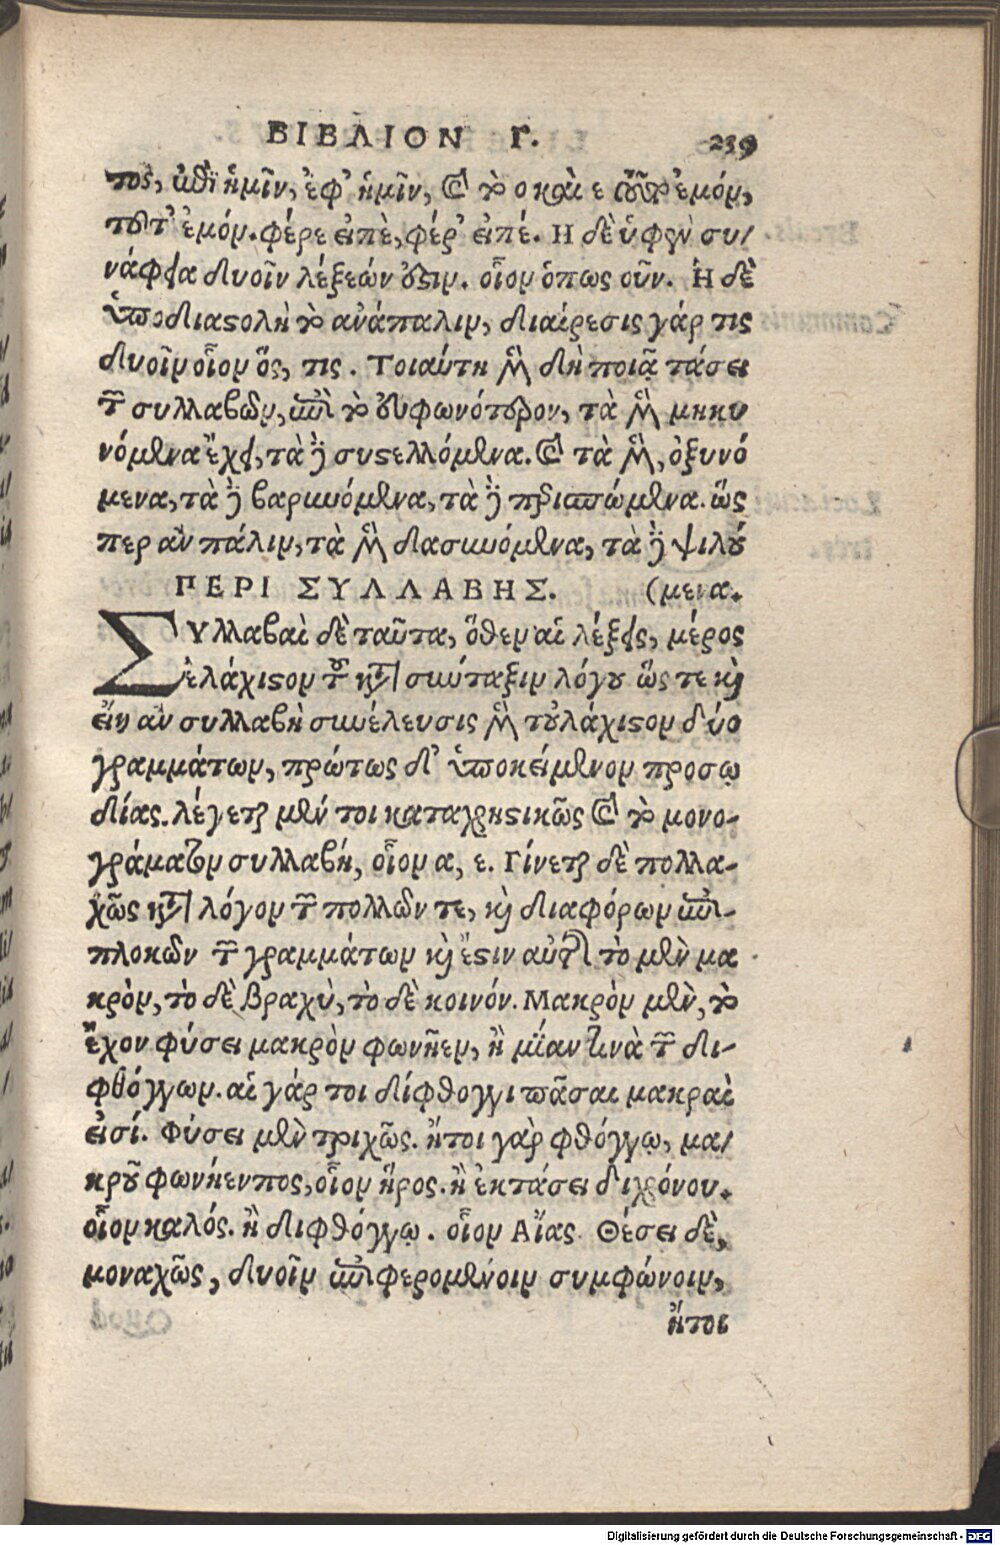 ΒΙΒΛΙΟΝ Γ. 239
τος, ἀθὶ ἡμῖν, ἐφ' ἡμῖν, καὶ τὸ ο καὶ ε ἐμόν,
τοὔτ' ἐμόν. φέρε εἰπὲ, φέρ' εἰπέ. Η δὲ ὑφὲν συ/
νάφεια δυοῖν λέξεών ὅστιν. οἷον ὅπως οὖν. Ἡ δὲ
ὑποδιαστολὴ τὸ ἀνάπαλιν, διαίρεσις γάρ τις
δυοῖν οἷον ὅς, τις. Τοιαύτη μὲν δὴ ποιᾷ τάσει
τῶν συλλαβῶν, ἐπὶ τὸ εὐφωνότερον, τὰ μὲν μηκυ
νόμενα ἔχει, τὰ δὲ συστελλόμενα. καὶ τὰ μὲν, ὀξυνό
μενα, τὰ δὲ βαρυνόμενα, τὰ δὲ περισπώμενα. ὥς
περ αὖ πάλιν, τὰ μὲν δασυνόμενα, τὰ δὲ ψιλού
ΠΕΡΙ ΣΥΛΛΑΒΗΣ. (μενα.
Συλλαβαὶ δὲ ταῦτα, ὅθεν αἱ λέξεις, μέρος
ἐλάχιστον τοῦ κατὰ σύνταξιν λόγου ὥς τε καὶ
εἴη ἂν συλλαβὴ συνέλευσις μὲν τοὐλάχιστον δύο
γραμμάτων, πρώτως δι' ὑποκείμενον προσῳ
δίας. λέγεται μέν τοι καταχρηστικῶς καὶ τὸ μονο-
γράματον συλλαβή, οἷον α, ε. Γίνεται δὲ πολλα-
χῶς κατὰ λόγον τῶν πολλῶν τε, καὶ διαφόρων ἐπι-
πλοκῶν τῶν γραμμάτων καὶ ἔστιν αὐτῶν τὸ μὲν μα
κρὸν, τὸ δὲ βραχὺ, τὸ δὲ κοινόν. Μακρὸν μὲν, τὸ
ἔχον φύσει μακρὸν φωνῆεν, ἢ μίαν τινὰ τῶν δι-
φθόγγων. αἱ γάρ τοι δίφθογγι πᾶσαι μακραὶ
εἰσί. Φύσει μὲν τριχῶς. ἤτοι γὰρ φθόγγῳ, μα/
κροῦ φωνήεντος, οἷον ἥρος. ἢ ἐκτάσει διχρόνου.
οἷον καλός. ἢ διφθόγγῳ. οἷον Αἴας. Θέσει δὲ,
μοναχῶς, δυοῖν ἐπιφερομένοιν συμφώνοιν,
ἤτοι
Digitalisierung gefördert durch die Deutsche Forschungsgemeinschaft - DFG